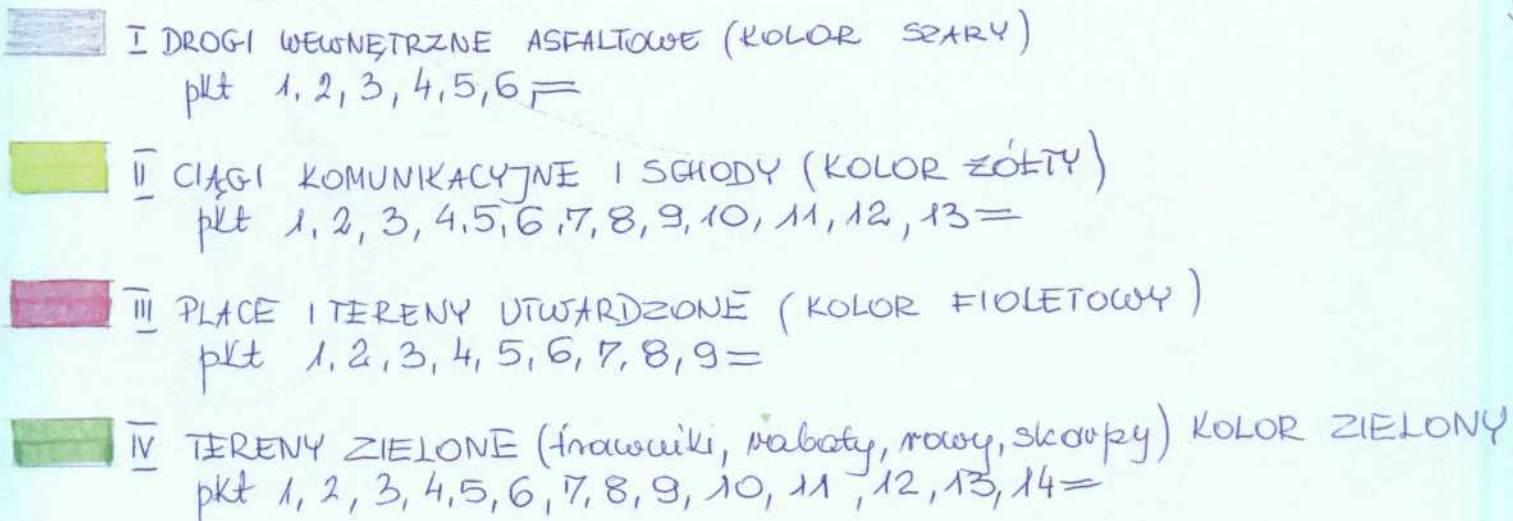 I DROGI WEWNĘTRZNE ASFALTOWE (KOLOR SZARY)
pkt 1, 2, 3, 4, 5, 6,=
II CIĄGI KOMUNIKACYJNE I SCHODY (KOLOR ŻÓŁTY)
pkt 1, 2, 3, 4, 5, 6, 7, 8, 9, 10, 11, 12, 13=
III PLACE I TERENY UTWARDZONE (KOLOR FIOLETOWY)
pkt 1, 2, 3, 4, 5, 6, 7, 8, 9=
IV TERENY ZIELONE (trawniki, rabaty, rowy, skarpy) KOLOR ZIELONY
pkt 1, 2, 3, 4, 5, 6, 7, 8, 9, 10, 11, 12, 13, 14=